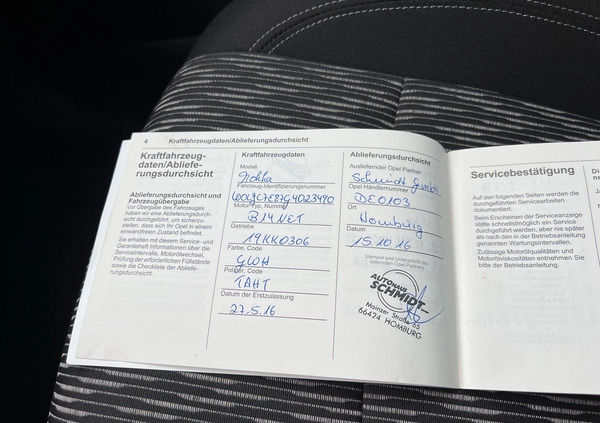 4 Kraftfahrzeugdaten/Ablieferungsdurchsicht
Kraftfahrzeug-
daten/Abliefe-
rungsdurchsicht
Ablieferungsdurchsicht und
Fahrzeugübergabe
Vor Übergabe des Fahrzeuges
haben wir eine Ablieferungsdurch-
sicht durchgeführt, um sicherzu-
stellen, dass sich Ihr Opel in einem
einwandfreien Zustand befindet.
Sie erhalten mit diesem Service- und
Garantieheft Informationen über die
Serviceintervalle, Motorölwechsel,
Prüfung der erforderlichen Füllstände
sowie die Checkliste der Abliefe-
rungsdurchsicht.
Kraftfahrzeugdaten
Modell
Mokka
Fahrzeug-Identifizierungsnummer
Motor-Typ, Nummer
B14NET
Getriebe
19KK0306
Farbe, Code
GWH
Polster, Code
TAHT
Datum der Erstzulassung
27.5.16
Ablieferungsdurchsicht
Ausliefernder Opel Partner
Schmidt GmbH
Opel Händlernummer
DE0103
Ort
Homburg
Datum
15.10.16
Stempel und Unterschrift des
liefernden Opel Partners
AUTOHAUS
SCHMIDT
Mainzer Straße 85
66424 HOMBURG
Servicebestätigung
Auf den folgenden Seiten werden die
durchgeführten Servicearbeiten
dokumentiert.
Beim Erscheinen der Serviceanzeige
sollte schnellstmöglich ein Service
durchgeführt werden, aber nie später
als nach den in der Betriebsanleitung
genannten Wartungsintervallen.
Zulässige Motorölqualitäten und
Motorölviskositäten entnehmen Sie
bitte der Betriebsanleitung.